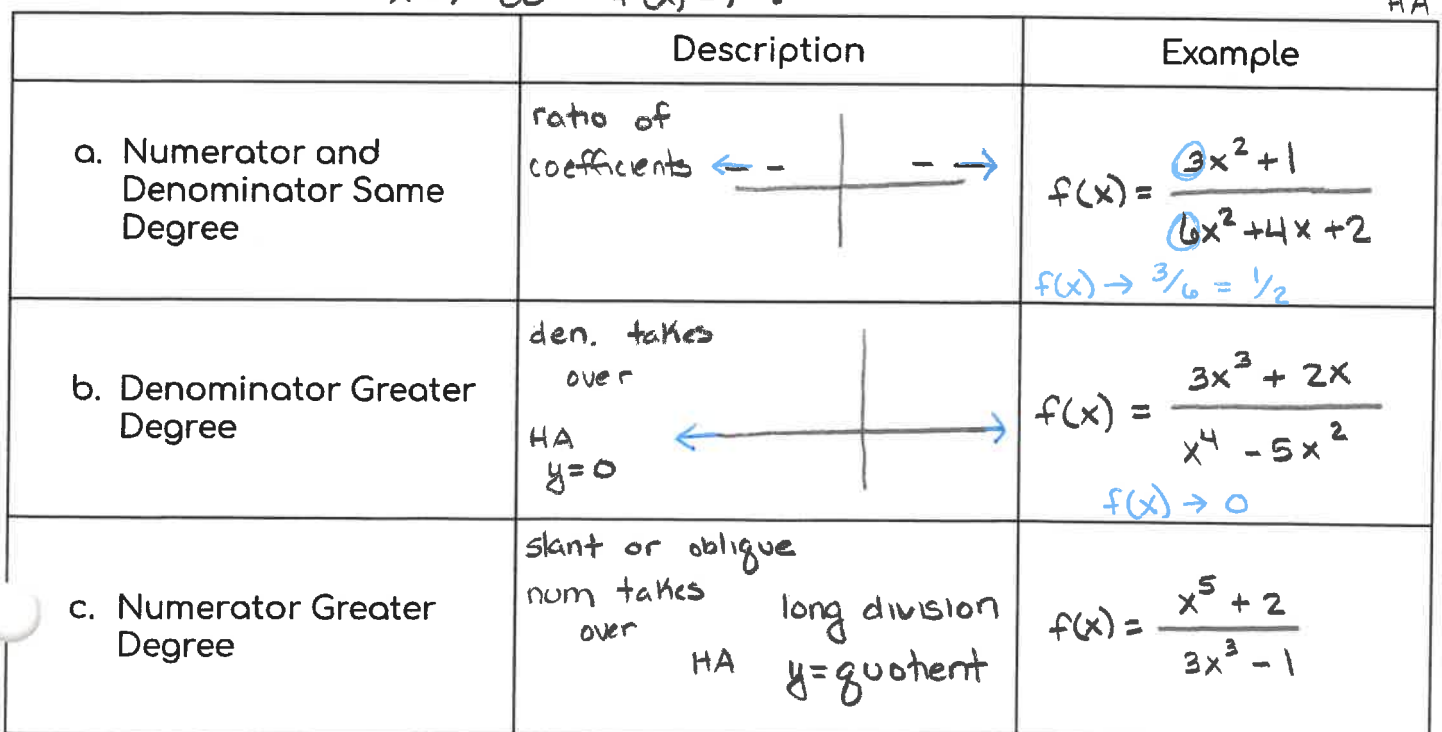 HA
Description
Example
a. Numerator and
Denominator Same
Degree
ratio of
coefficients
f(x) = 3x² + 1
6x² + 4x + 2
f(x) → 3/6 = 1/2
b. Denominator Greater
Degree
den. takes
over
HA
y = 0
f(x) = 3x³ + 2x
x⁴ - 5x²
f(x) → 0
c. Numerator Greater
Degree
slant or oblique
num takes
over
long division
HA y = quotient
f(x) = x⁵ + 2
3x³ - 1